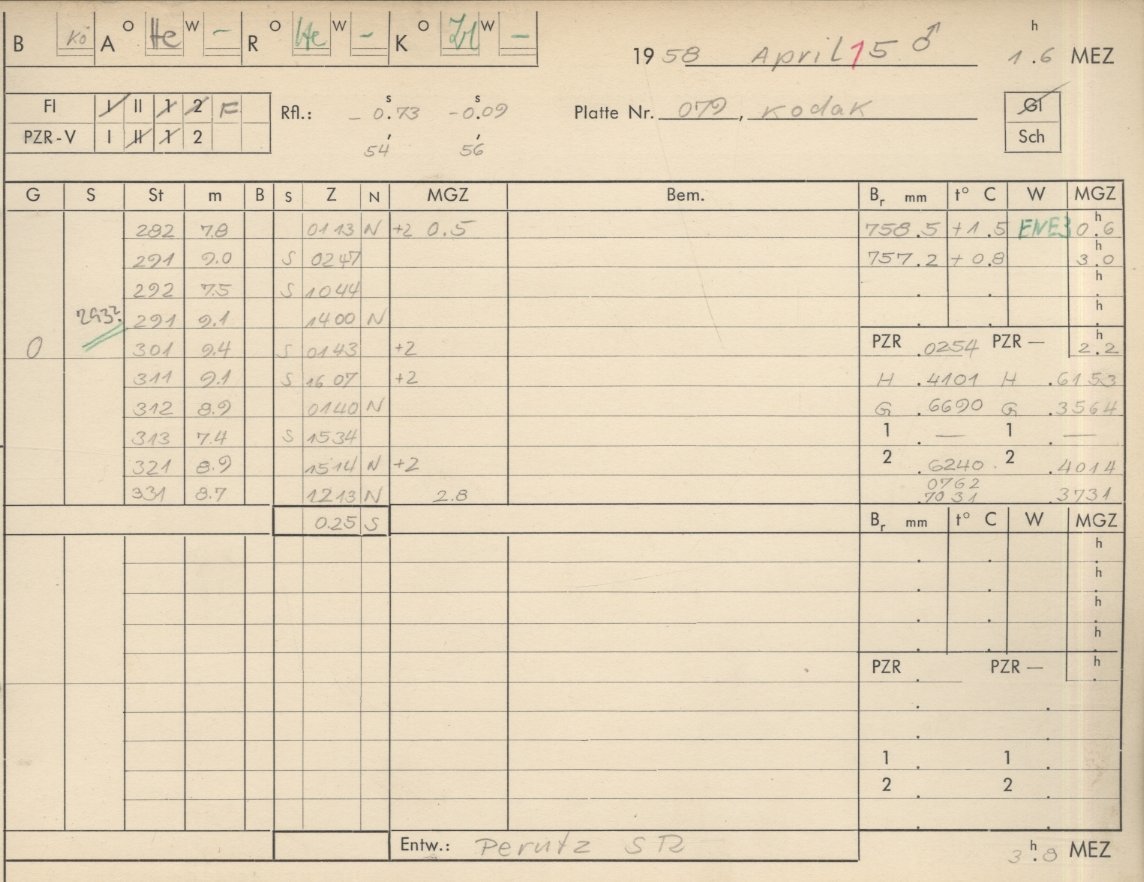 B Kö A O He W – R O He W – K O Zl W –
1958 April 15 ♂ 1h.6 MEZ
Fl I II 1 2 F
PZR-V I II 1 2
Rfl.: – 0s.73 –0s.09
54′ 56′
Platte Nr. 079, Kodak
Gl
Sch
G S St m B S Z N MGZ Bem. Br mm t° C W MGZ
282 7.8 0113 N +2 0.5 758.5 +1.5 ENE3 0h.6
291 9.0 S 0247 757.2 +0.8 3h.0
292 7.5 S 1044 h
293? 291 9.1 1400 N h
0 301 9.4 S 0143 +2 PZR .0254 PZR – 2h.2
311 9.1 S 1607 +2 H .4101 H .6153
312 8.9 0140 N G .6690 G .3564
313 7.4 S 1534 1 . — 1 . —
321 8.9 1514 N +2 2 .6240 2 .4014
0762
331 8.7 1213 N 2.8 .7031 .3731
0.25 S Br mm t° C W MGZ
h
h
h
h
PZR . PZR – h
1 1
2 2
Entw.: Perutz SR
3h.8 MEZ